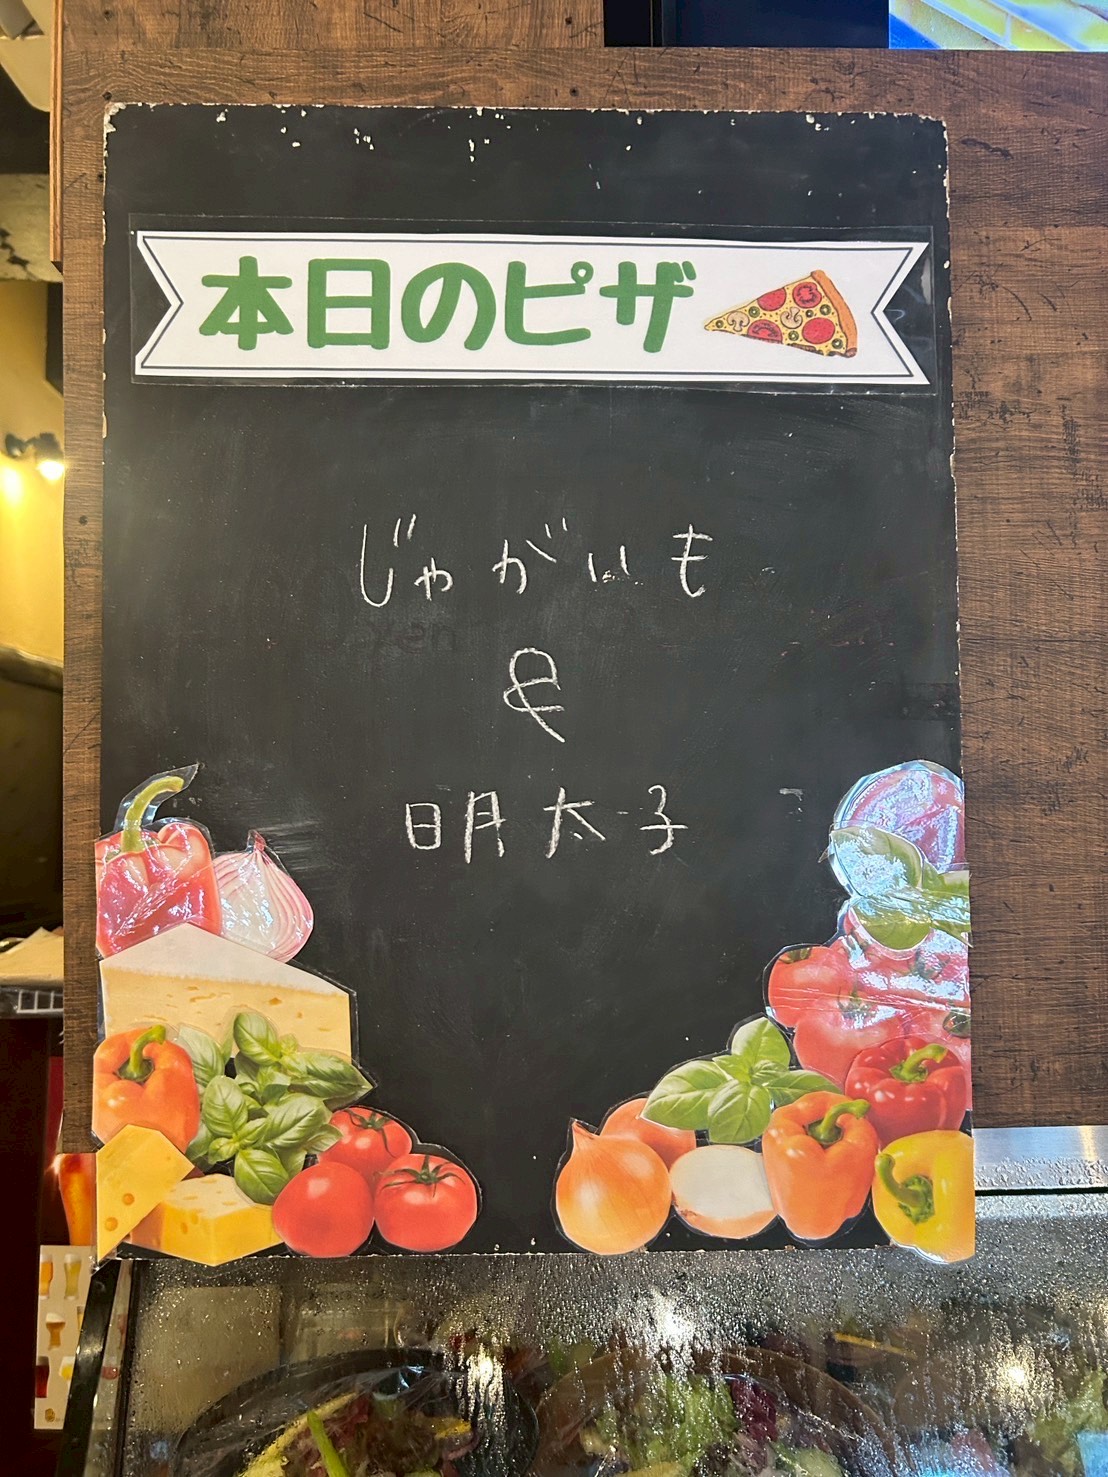 本日のピザ
じゃがいも
&
明太子